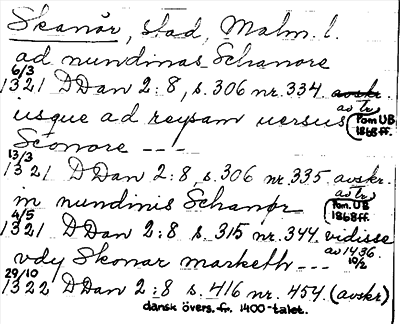 Skanör, stad, Malm. l.
ad nundinas Schanore
6/3
1321 DDan 2:8, s. 306 nr. 334 avskr.
av tr.
usque ad reysam uersus (Pom UB
1868 ff.
Sconore ---
13/3
1321 DDan 2:8, s. 306 nr. 335 avskr.
av tr.
in nundinis Schanør (Pom. UB
1868 ff.
4/5
1321 DDan 2:8 s. 315 nr. 344 vidisse
av 1436
10/2
vdy Skonar marketh ---
29/10
1322 DDan 2:8 s. 416 nr. 454. (avskr)
dansk övers. fr. 1400-talet.